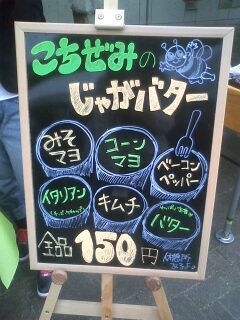 こちぜみの
じゃがバター
みそ
マヨ
コーン
マヨ
ベーコン
ペッパー
イタリアン
キムチ
バター
全品150円